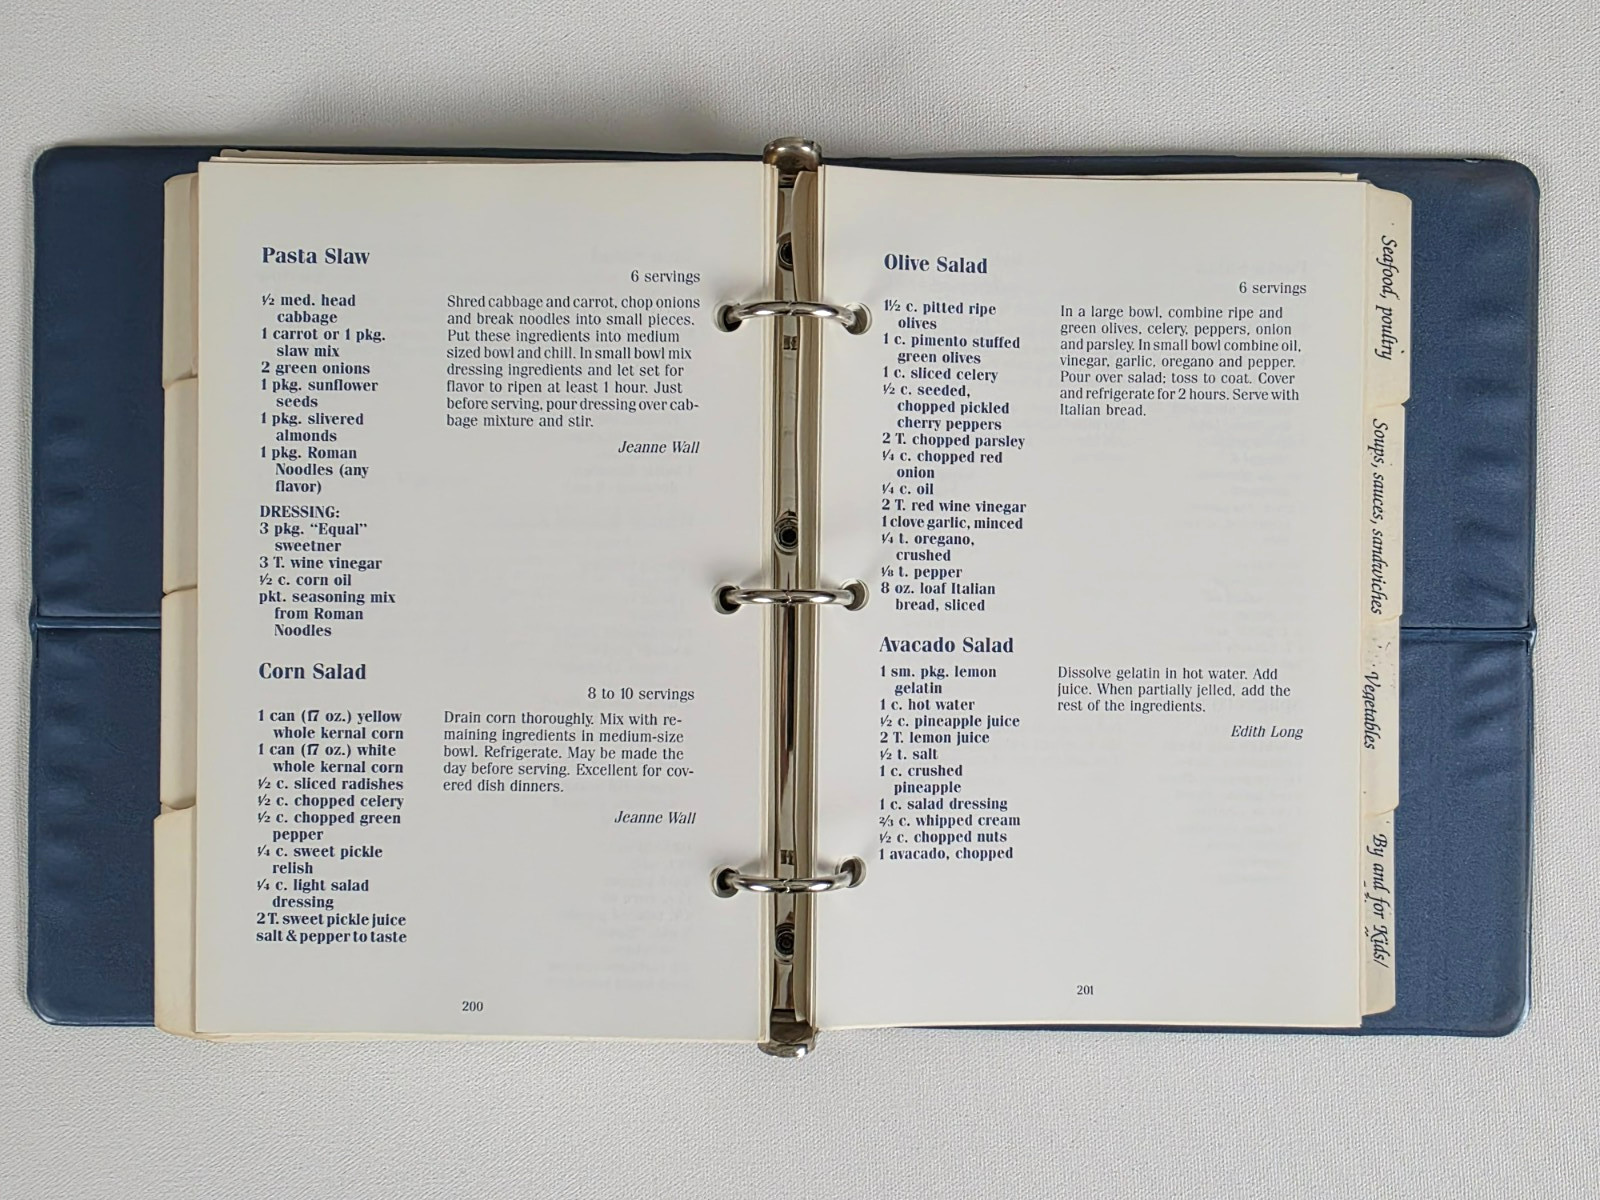 Pasta Slaw
6 servings
½ med. head
cabbage
1 carrot or 1 pkg.
slaw mix
2 green onions
1 pkg. sunflower
seeds
1 pkg. slivered
almonds
1 pkg. Roman
Noodles (any
flavor)
DRESSING:
3 pkg. “Equal”
sweetner
3 T. wine vinegar
½ c. corn oil
pkt. seasoning mix
from Roman
Noodles
Shred cabbage and carrot, chop onions
and break noodles into small pieces.
Put these ingredients into medium
sized bowl and chill. In small bowl mix
dressing ingredients and let set for
flavor to ripen at least 1 hour. Just
before serving, pour dressing over cab-
bage mixture and stir.
Jeanne Wall
Corn Salad
8 to 10 servings
1 can (17 oz.) yellow
whole kernal corn
1 can (17 oz.) white
whole kernal corn
½ c. sliced radishes
½ c. chopped celery
½ c. chopped green
pepper
¼ c. sweet pickle
relish
¼ c. light salad
dressing
2 T. sweet pickle juice
salt & pepper to taste
Drain corn thoroughly. Mix with re-
maining ingredients in medium-size
bowl. Refrigerate. May be made the
day before serving. Excellent for cov-
ered dish dinners.
Jeanne Wall
200
Olive Salad
6 servings
1½ c. pitted ripe
olives
1 c. pimento stuffed
green olives
1 c. sliced celery
½ c. seeded,
chopped pickled
cherry peppers
2 T. chopped parsley
¼ c. chopped red
onion
¼ c. oil
2 T. red wine vinegar
1 clove garlic, minced
¼ t. oregano,
crushed
⅛ t. pepper
8 oz. loaf Italian
bread, sliced
In a large bowl, combine ripe and
green olives, celery, peppers, onion
and parsley. In small bowl combine oil,
vinegar, garlic, oregano and pepper.
Pour over salad; toss to coat. Cover
and refrigerate for 2 hours. Serve with
Italian bread.
Avacado Salad
1 sm. pkg. lemon
gelatin
1 c. hot water
½ c. pineapple juice
2 T. lemon juice
½ t. salt
1 c. crushed
pineapple
1 c. salad dressing
⅔ c. whipped cream
½ c. chopped nuts
1 avacado, chopped
Dissolve gelatin in hot water. Add
juice. When partially jelled, add the
rest of the ingredients.
Edith Long
201
Seafood, poultry
Soups, sauces, sandwiches
Vegetables
By and for Kids/